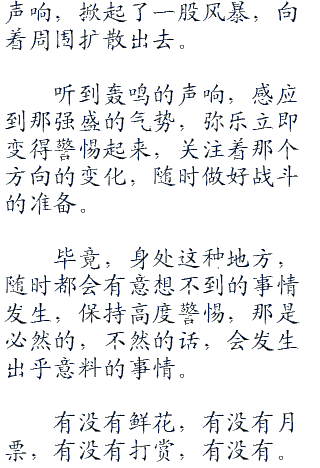 声响，掀起了一股风暴，向
着周围扩散出去。
听到轰鸣的声响，感应
到那强盛的气势，弥乐立即
变得警惕起来，关注着那个
方向的变化，随时做好战斗
的准备。
毕竟，身处这种地方，
随时都会有意想不到的事情
发生，保持高度警惕，那是
必然的，不然的话，会发生
出乎意料的事情。
有没有鲜花，有没有月
票，有没有打赏，有没有。